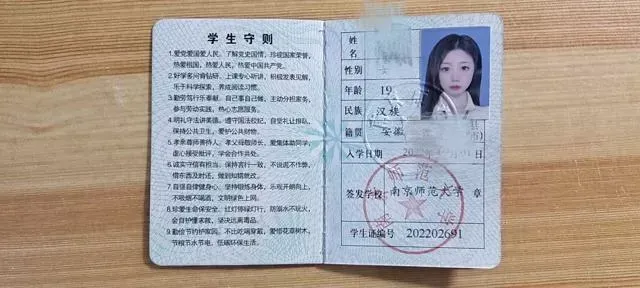 学生守则
1.爱党爱国爱人民。了解党史国情，珍视国家荣誉，
热爱祖国，热爱人民，热爱中国共产党。
2.好学多问肯钻研。上课专心听讲，积极发表见解，
乐于科学探索，养成阅读习惯。
3.勤劳笃行乐奉献。自己事自己做，主动分担家务，
参与劳动实践，热心志愿服务。
4.明礼守法讲美德。遵守国法校纪，自觉礼让排队，
保持公共卫生，爱护公共财物。
5.孝亲尊师善待人。孝父母敬师长，爱集体助同学，
虚心接受批评，学会合作共处。
6.诚实守信有担当。保持言行一致，不说谎不作弊，
借东西及时还，做到知错就改。
7.自强自律健身心。坚持锻炼身体，乐观开朗向上，
不吸烟不喝酒，文明绿色上网。
8.珍爱生命保安全。红灯停绿灯行，防溺水不玩火，
会自护懂求救，坚决远离毒品。
9.勤俭节约护家园。不比吃喝穿戴，爱惜花草树木，
节粮节水节电，低碳环保生活。
姓
名
性别 女
年龄 19
民族 汉族
籍贯 安徽
入学日期
签发学校 南京师范大学 章
学生证编号 202202691